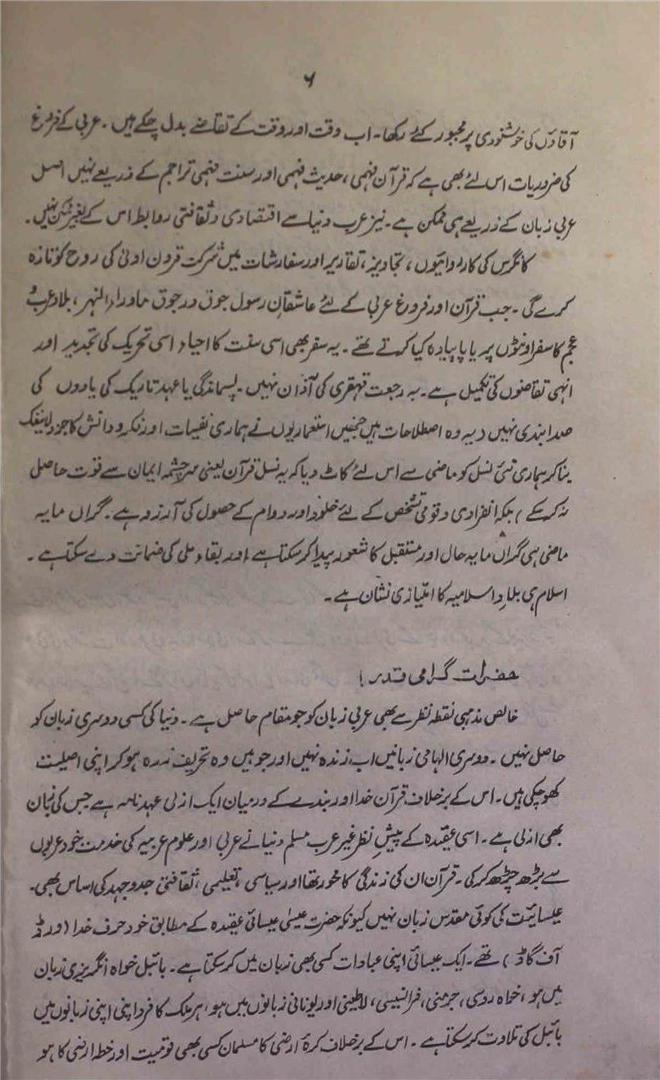 ۶
آقاؤں کی خوشنودی پر مجبور کئے رکھا۔ اب وقت اور وقت کے تقاضے بدل چکے ہیں۔ عربی کے فروغ
کی ضروریات اس لئے بھی ہے کہ قرآن فہمی، حدیث فہمی اور سنت فہمی تراجم کے ذریعے نہیں اصل
عربی زبان کے ذریعے ہی ممکن ہے۔ نیز عرب دنیا سے اقتصادی و ثقافتی روابط اس کے بغیر ممکن نہیں۔
کانگرس کی کارروائیوں، تجاویز، تقاریر اور سفارشات میں شرکت قرون اولیٰ کی روح کو تازہ
کرے گی۔ جب قرآن اور فروغ عربی کے لئے عاشقانِ رسول جوق در جوق ماوراء النہر، بلاد عرب و
عجم کا سفر اونٹوں پر یا پا پیادہ کیا کرتے تھے۔ یہ سفر بھی اسی سنت کا احیاء اسی تحریک کی تجدید اور
انہی تقاضوں کی تکمیل ہے۔ یہ رجعت قہقری کی آذان نہیں۔ پسماندگی یا عہد تاریک کی یادوں کی
صدا بندی نہیں دیہ وہ اصطلاحات ہیں جنہیں استعماریوں نے ہماری نفسیات اور فکر و دانش کا جزو لاینفک
بنا کر ہماری نئی نسل کو ماضی سے اس لئے کاٹ دیا کہ یہ نسل قرآن یعنی سرچشمہ ایمان سے قوت حاصل
نہ کر سکے) بلکہ انفرادی و قومی تشخص کے لئے خلود اور دوام کے حصول کی آرزو ہے۔ گراں مایہ
ماضی ہی گراں مایہ حال اور مستقبل کا شعور پیدا کر سکتا ہے اور بقاء ملی کی ضمانت دے سکتا ہے۔
اسلام ہی بلادِ اسلامیہ کا امتیازی نشان ہے۔
حضرات گرامی قدر!
خالص مذہبی نقطہ نظر سے بھی عربی زبان کو جو مقام حاصل ہے۔ دنیا کی کسی دوسری زبان کو
حاصل نہیں۔ دوسری الہامی زبانیں اب زندہ نہیں اور جو ہیں وہ تحریف زدہ ہو کر اپنی اصلیت
کھو چکی ہیں۔ اس کے برخلاف قرآن خدا اور بندے کے درمیان ایک ازلی عہد نامہ ہے جس کی زبان
بھی ازلی ہے۔ اسی عقیدہ کے پیشِ نظر غیر عرب مسلم دنیا نے عربی اور علوم عربیہ کی خدمت خود عربوں
سے بڑھ چڑھ کر کی۔ قرآن ان کی زندگی کا محور تھا اور سیاسی، تعلیمی، ثقافتی جدوجہد کی اساس بھی۔
عیسائیت کی کوئی مقدس زبان نہیں کیونکہ حضرت عیسیٰ عیسائی عقیدہ کے مطابق خود حرف خدا (ورڈ
آف گاڈ) تھے۔ ایک عیسائی اپنی عبادات کسی بھی زبان میں کر سکتا ہے۔ بائبل خواہ انگریزی زبان
میں ہو، خواہ روسی، جرمنی، فرانسیسی، لاطینی اور یونانی زبانوں میں ہو، ہر ملک کا فرد اپنی اپنی زبانوں میں
بائبل کی تلاوت کر سکتا ہے۔ اس کے برخلاف کرۂ ارضی کا مسلمان کسی بھی قومیت اور خطہ ارضی کا ہو